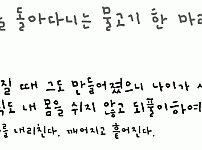 돌아다니는 물고기 한 마리
질 때 그도 만들어졌으니 나이가
도 내 몸을 쉬지 않고 되풀이하여
를 내리친다. 깨어지고 흩어진다.